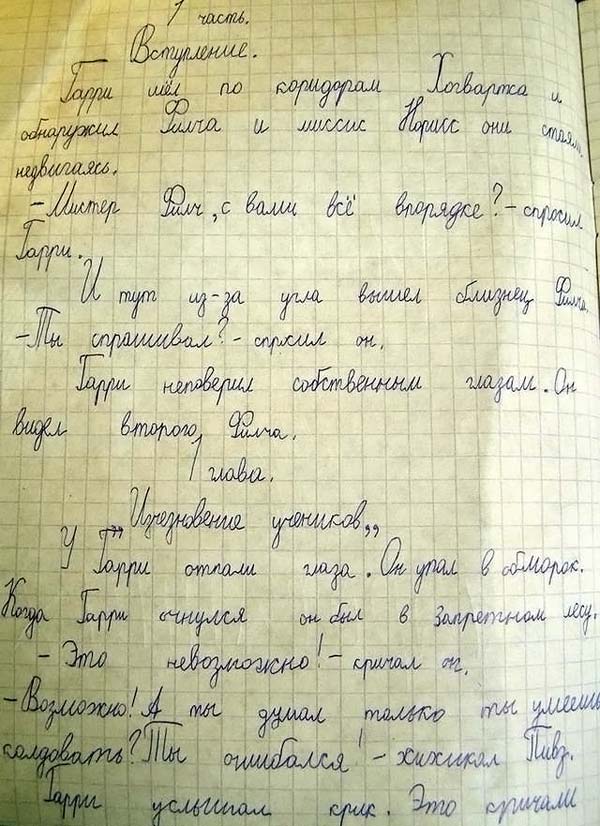 1 часть.
Вступление.
Гарри шёл по коридорам Хогвартса и
обнаружил Филча и миссис Норисс они стояли
недвигаясь.
- Мистер Филч, с вами всё впорядке? - спросил
Гарри.
И тут из-за угла вышел близнец Филча.
- Ты спрашивал? - спрсил он.
Гарри неповерил собственным глазам. Он
видел второго Филча.
1 глава.
„Изчезновение учеников„
У Гарри отпали глаза. Он упал в обморок.
Когда Гарри очнулся он был в Запретном лесу.
- Это невозможно! - кричал он.
- Возможно! А ты думал только ты умеешь
колдовать? Ты ошибался! - хихикал Пивз.
Гарри услышал крик. Это кричали